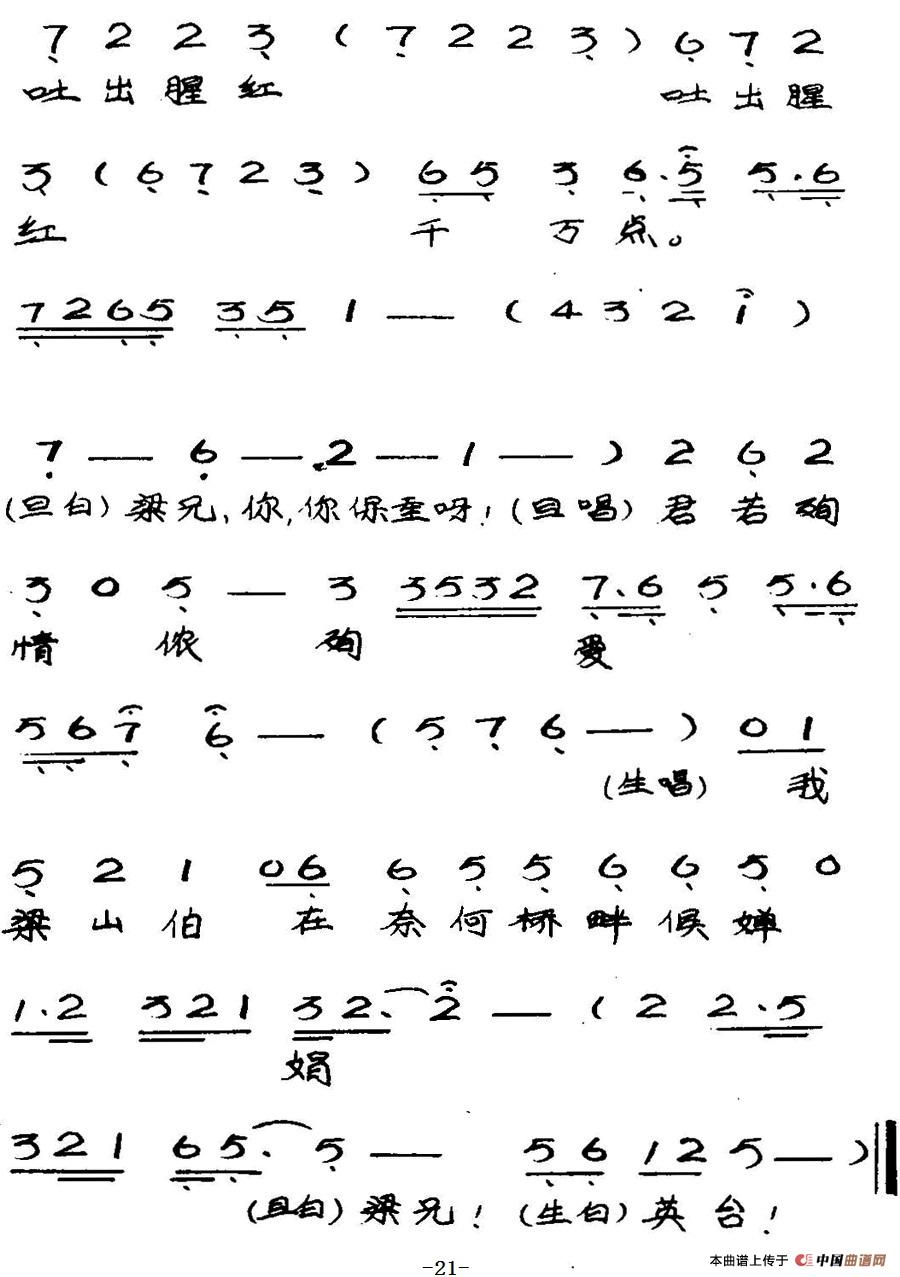 7 2 2 3 ( 7 2 2 3 ) 6 7 2
吐 出 腥 红 吐 出 腥
3 ( 6 7 2 3 ) 6 5 3 6 . 5 5 . 6
红 千 万 点。
7 2 6 5 3 5 1 — ( 4 3 2 1 )
7 — 6 — 2 — 1 — ) 2 6 2
(旦白) 梁兄、你,你你至呀! (旦唱) 君 若 殉
3 0 5 — 3 3 5 3 2 7 . 6 5 5 . 6
情 侬 殉 爱
5 6 7 6 — ( 5 7 6 — ) 0 1
(生唱) 我
5 2 1 0 6 6 5 5 6 6 5 0
梁 山 伯 在 奈 何 桥 畔 候 婵
1 . 2 3 2 1 3 2 . 2 — ( 2 2 . 5
娟
3 2 1 6 5 . 5 — 5 6 1 2 5 — )
(旦白) 梁兄! (生白) 英 台!
-21-
本曲谱上传于 中国曲谱网